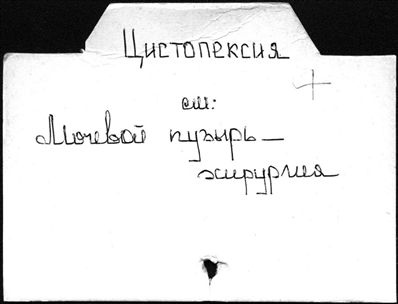 Цистопексия
см:
Мочевой пузырь —
хирургия